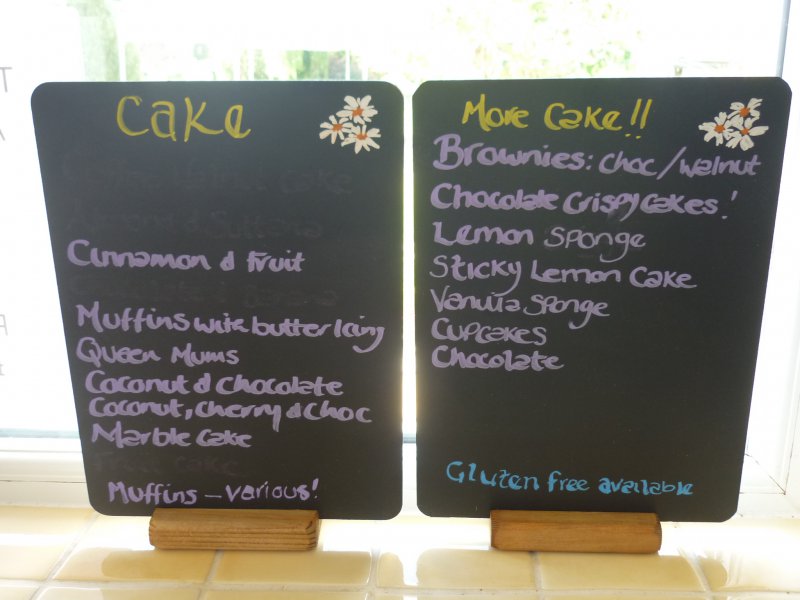 Cake
Cinnamon & Fruit
Muffins with butter Icing
Queen Mums
Coconut & Chocolate
Coconut, Cherry & Choc
Marble Cake
Fruit Cake
Muffins – various!
More Cake!!
Brownies: choc/walnut
Chocolate Crispy Cakes!
Lemon Sponge
Sticky Lemon Cake
Vanilla Sponge
Cupcakes
Chocolate
Gluten free available